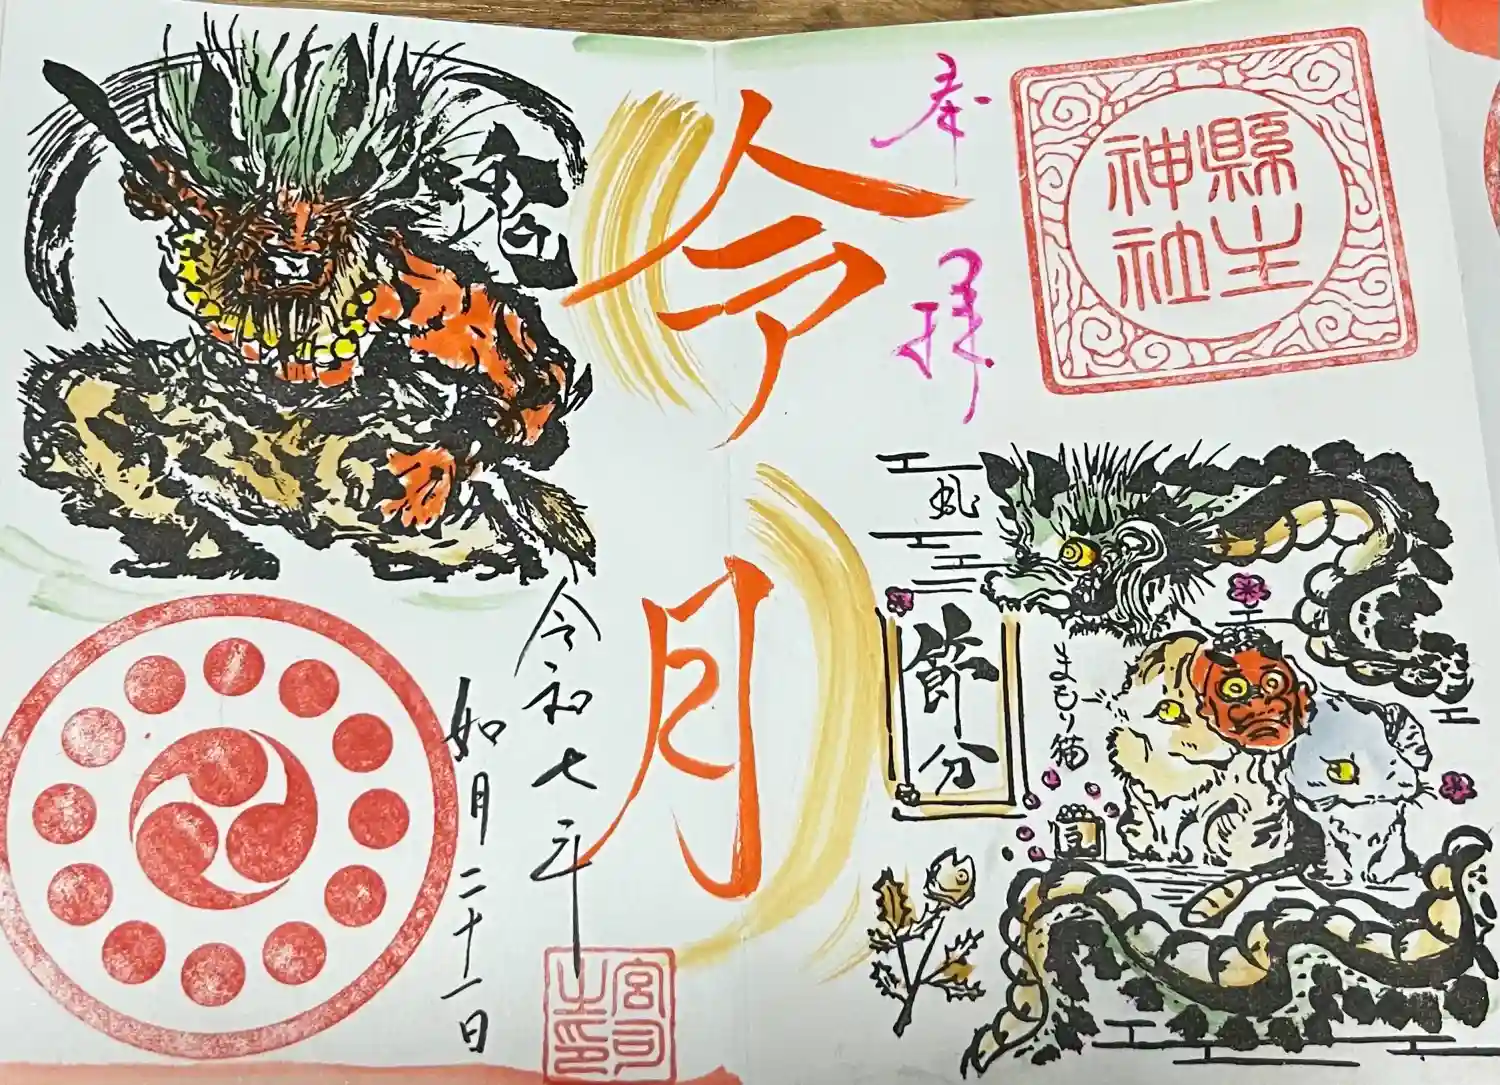 奉拝
縣主
神社
令月
鬼
節分
まもり猫
豆
令和七年
如月二十一日
宮司
之印